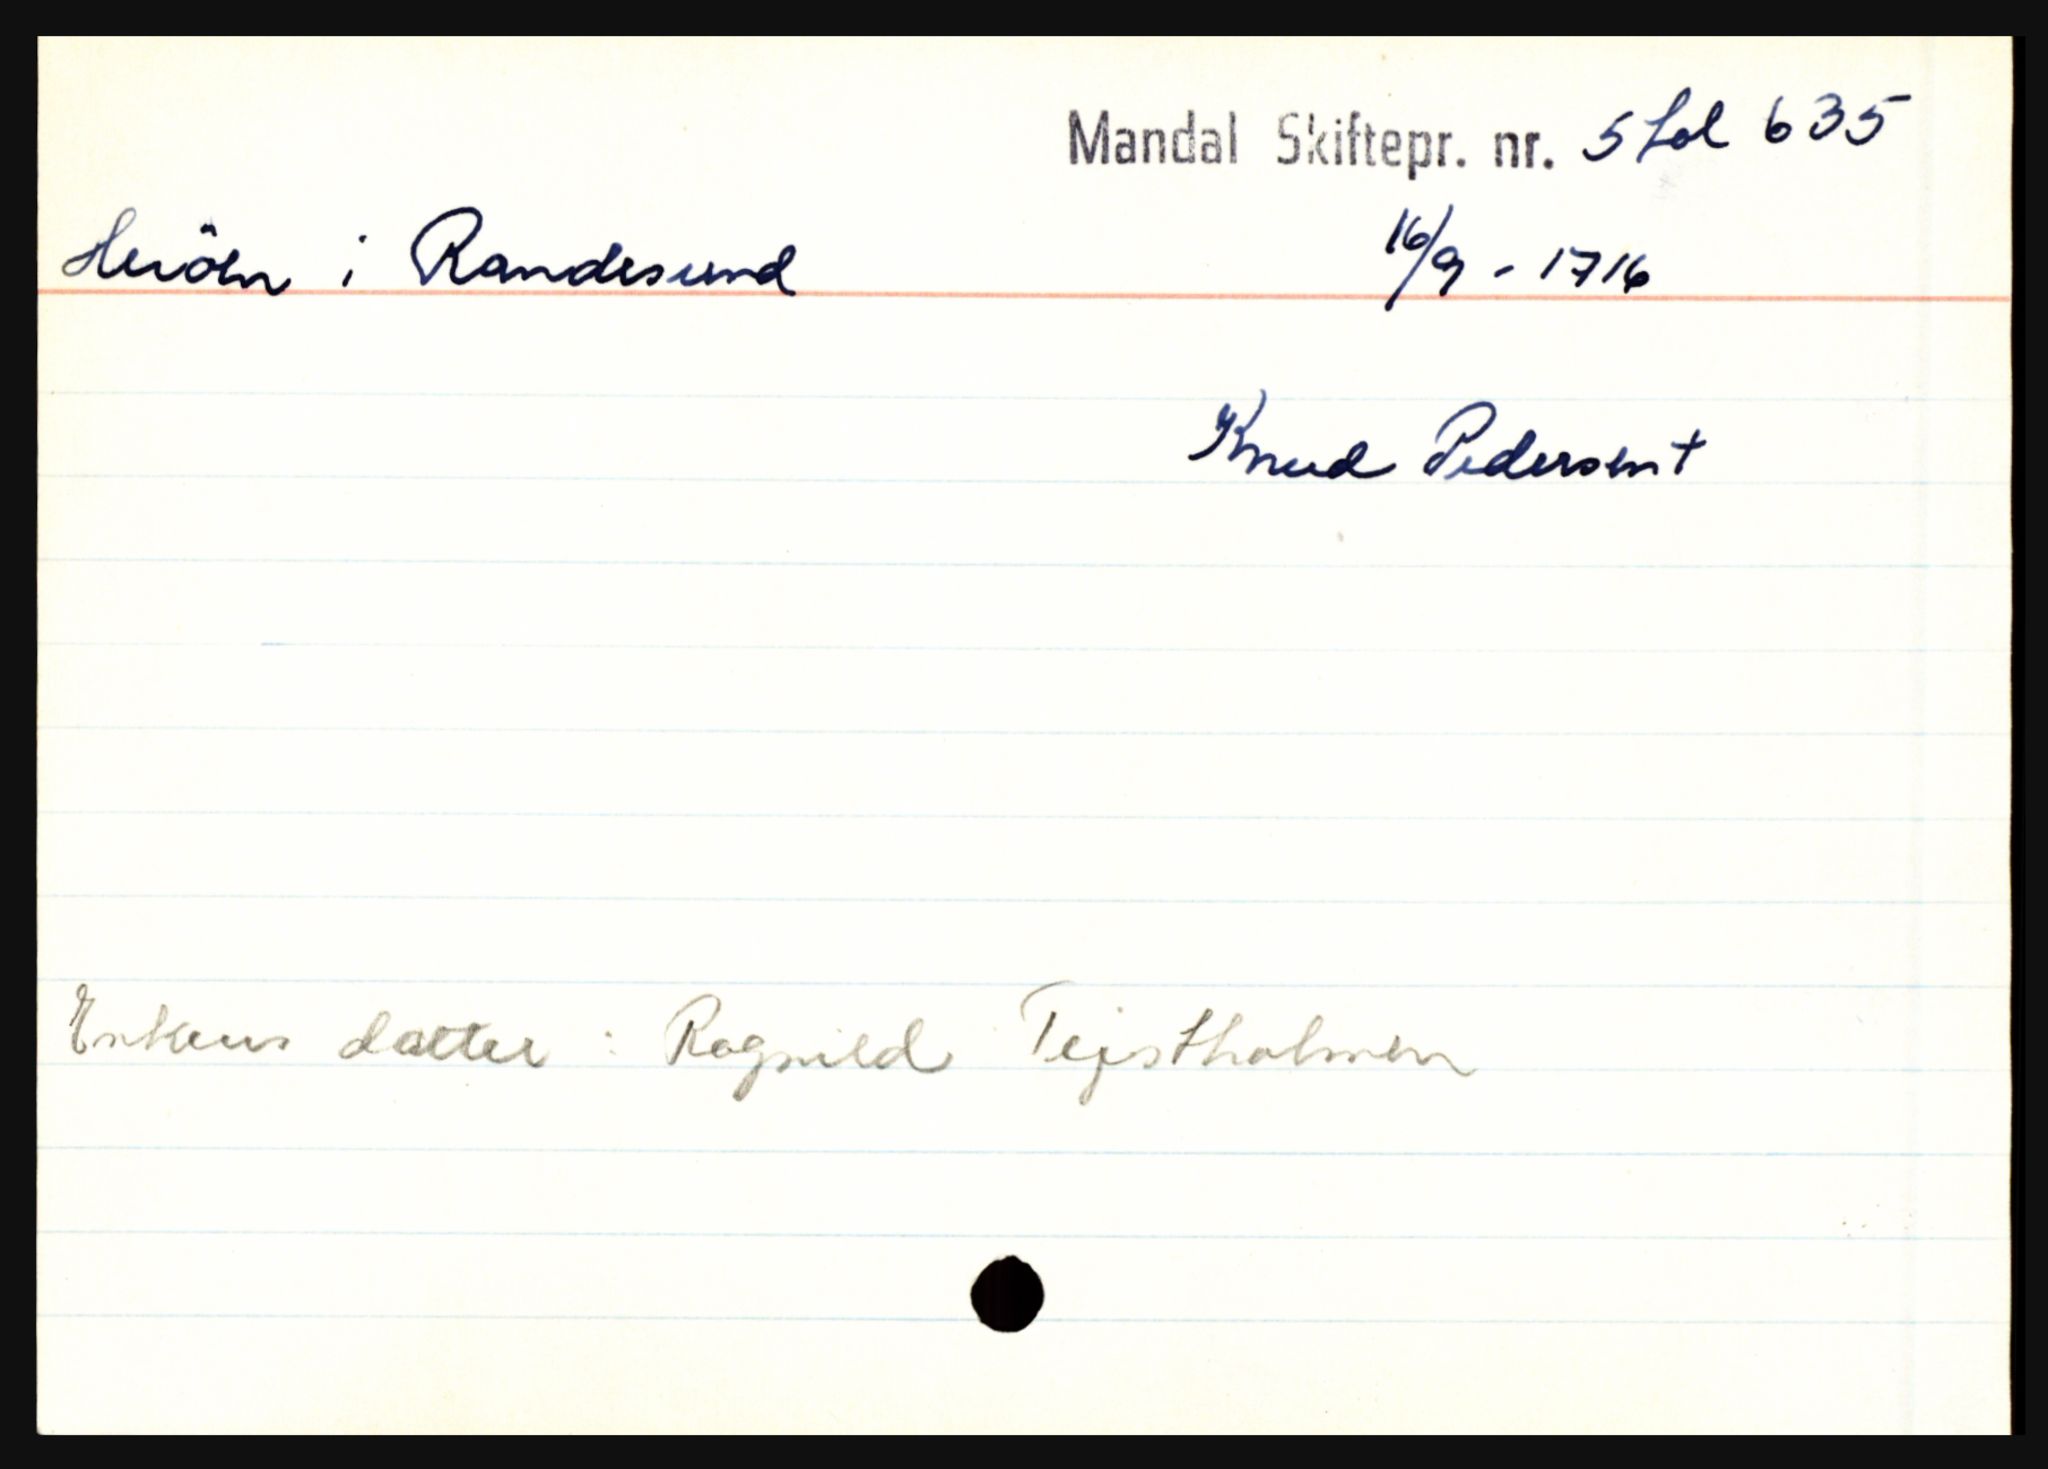 Mandal Skiftepr. nr. 5 fol 635
Heröen i Randesund 16/9 - 1716
Knud Pedersen †
Enkens datter : Ragnild Tejstholmen